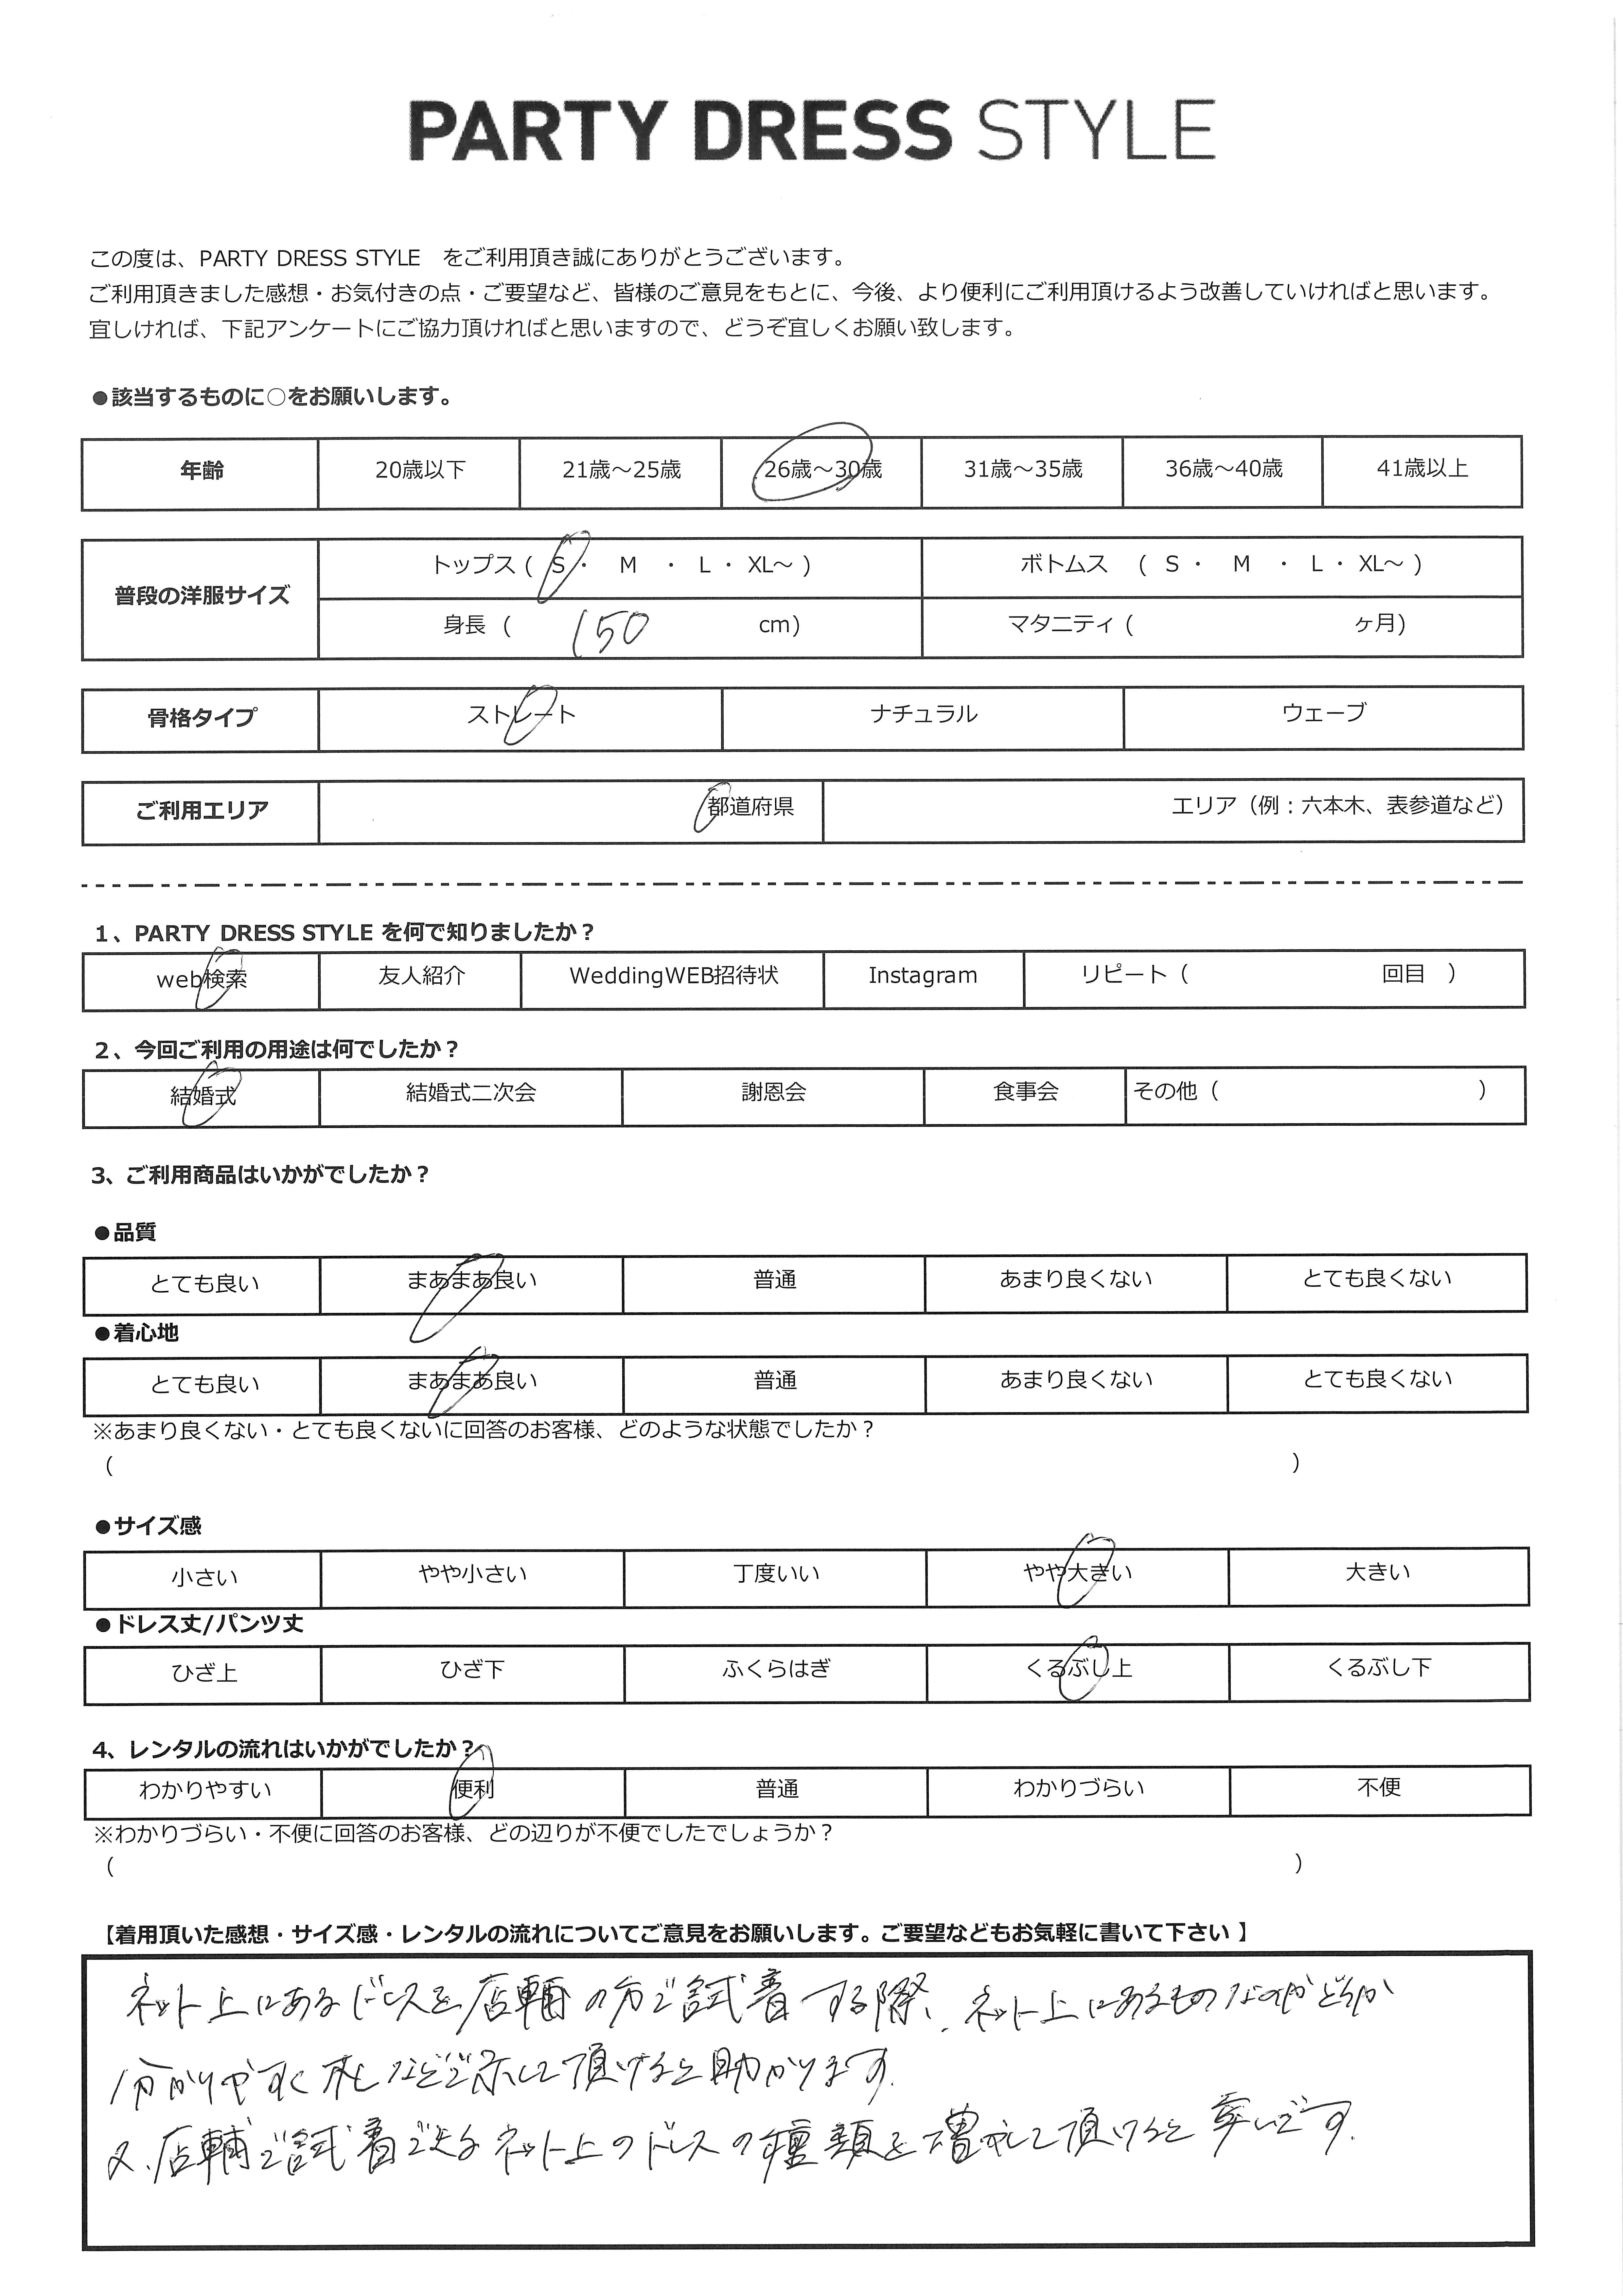 PARTY DRESS STYLE
この度は、PARTY DRESS STYLE をご利用頂き誠にありがとうございます。
ご利用頂きました感想・お気付きの点・ご要望など、皆様のご意見をもとに、今後、より便利にご利用頂けるよう改善していければと思います。
宜しければ、下記アンケートにご協力頂ければと思いますので、どうぞ宜しくお願い致します。
●該当するものに○をお願いします。
年齢 20歳以下 21歳～25歳 26歳～30歳 31歳～35歳 36歳～40歳 41歳以上
普段の洋服サイズ
トップス ( S ・ M ・ L ・ XL～ ) ボトムス ( S ・ M ・ L ・ XL～ )
身長 ( 150 cm) マタニティ ( ヶ月)
骨格タイプ ストレート ナチュラル ウェーブ
ご利用エリア 都道府県 エリア（例：六本木、表参道など）
1、PARTY DRESS STYLE を何で知りましたか？
web検索 友人紹介 WeddingWEB招待状 Instagram リピート ( 回目 )
2、今回ご利用の用途は何でしたか？
結婚式 結婚式二次会 謝恩会 食事会 その他 ( )
3、ご利用商品はいかがでしたか？
●品質
とても良い まあまあ良い 普通 あまり良くない とても良くない
●着心地
とても良い まあまあ良い 普通 あまり良くない とても良くない
※あまり良くない・とても良くないに回答のお客様、どのような状態でしたか？
( )
●サイズ感
小さい やや小さい 丁度いい やや大きい 大きい
●ドレス丈/パンツ丈
ひざ上 ひざ下 ふくらはぎ くるぶし上 くるぶし下
4、レンタルの流れはいかがでしたか？
わかりやすい 便利 普通 わかりづらい 不便
※わかりづらい・不便に回答のお客様、どの辺りが不便でしたでしょうか？
( )
【着用頂いた感想・サイズ感・レンタルの流れについてご意見をお願いします。ご要望などもお気軽に書いて下さい 】
ネット上にあるドレスを店舗の方で試着する際、ネット上にあるものなのかどうか
分かりやすく札などで示して頂けると助かります。
又、店舗で試着できるネット上のドレスの種類を増やして頂けると幸いです。